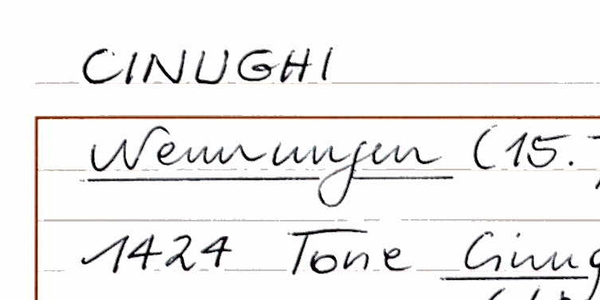 CINUGHI
Nennungen (15.
1424 Tone Cinug